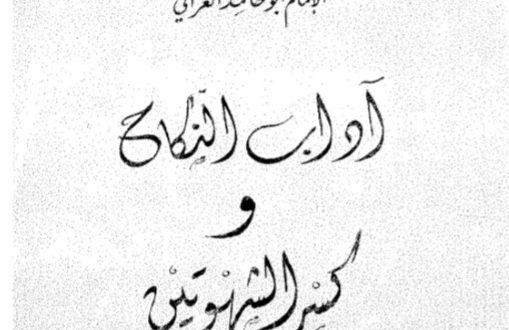 الإمام أبو حامد الغزالي
آداب النّكاح
و
كسر الشهوتين